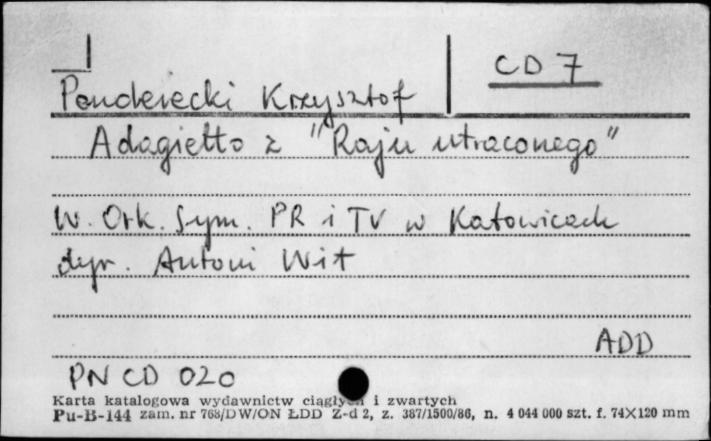 CD 7
Penderecki Krzysztof
Adagietto z "Raju utraconego"
W. Ork. Sym. PR i TV w Katowicach
dyr. Antoni Wit
ADD
PN CD 020
Karta katalogowa wydawnictw ciągłych i zwartych
Pu-B-144 zam. nr 768/DW/ON ŁDD Z-d 2, z. 387/1500/86, n. 4 044 000 szt. f. 74×120 mm